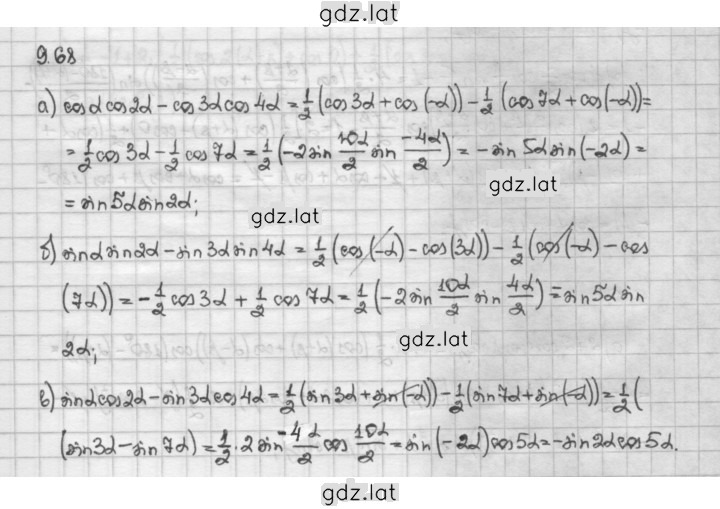 gdz.lat
9.68
а) cosαcos2α - cos3αcos4α = 1/2 (cos3α + cos(-α)) - 1/2 (cos7α + cos(-α)) =
= 1/2 cos3α - 1/2 cos7α = 1/2 (-2sin 10α/2 sin -4α/2) = -sin5αsin(-2α) =
gdz.lat
= sin5αsin2α;
gdz.lat
б) sinαsin2α - sin3αsin4α = 1/2 (cos(-α) - cos(3α)) - 1/2 (cos(-α) - cos
(7α)) = -1/2 cos3α + 1/2 cos7α = 1/2 (-2sin 10α/2 sin 4α/2) = sin5αsin
2α;
gdz.lat
в) sinαcos2α - sin3αcos4α = 1/2 (sin3α + sin(-α)) - 1/2 (sin7α + sin(-α)) = 1/2 (
(sin3α - sin7α) = 1/2 · 2sin -4α/2 cos 10α/2 = sin(-2α)cos5α = -sin2αcos5α.
gdz.lat